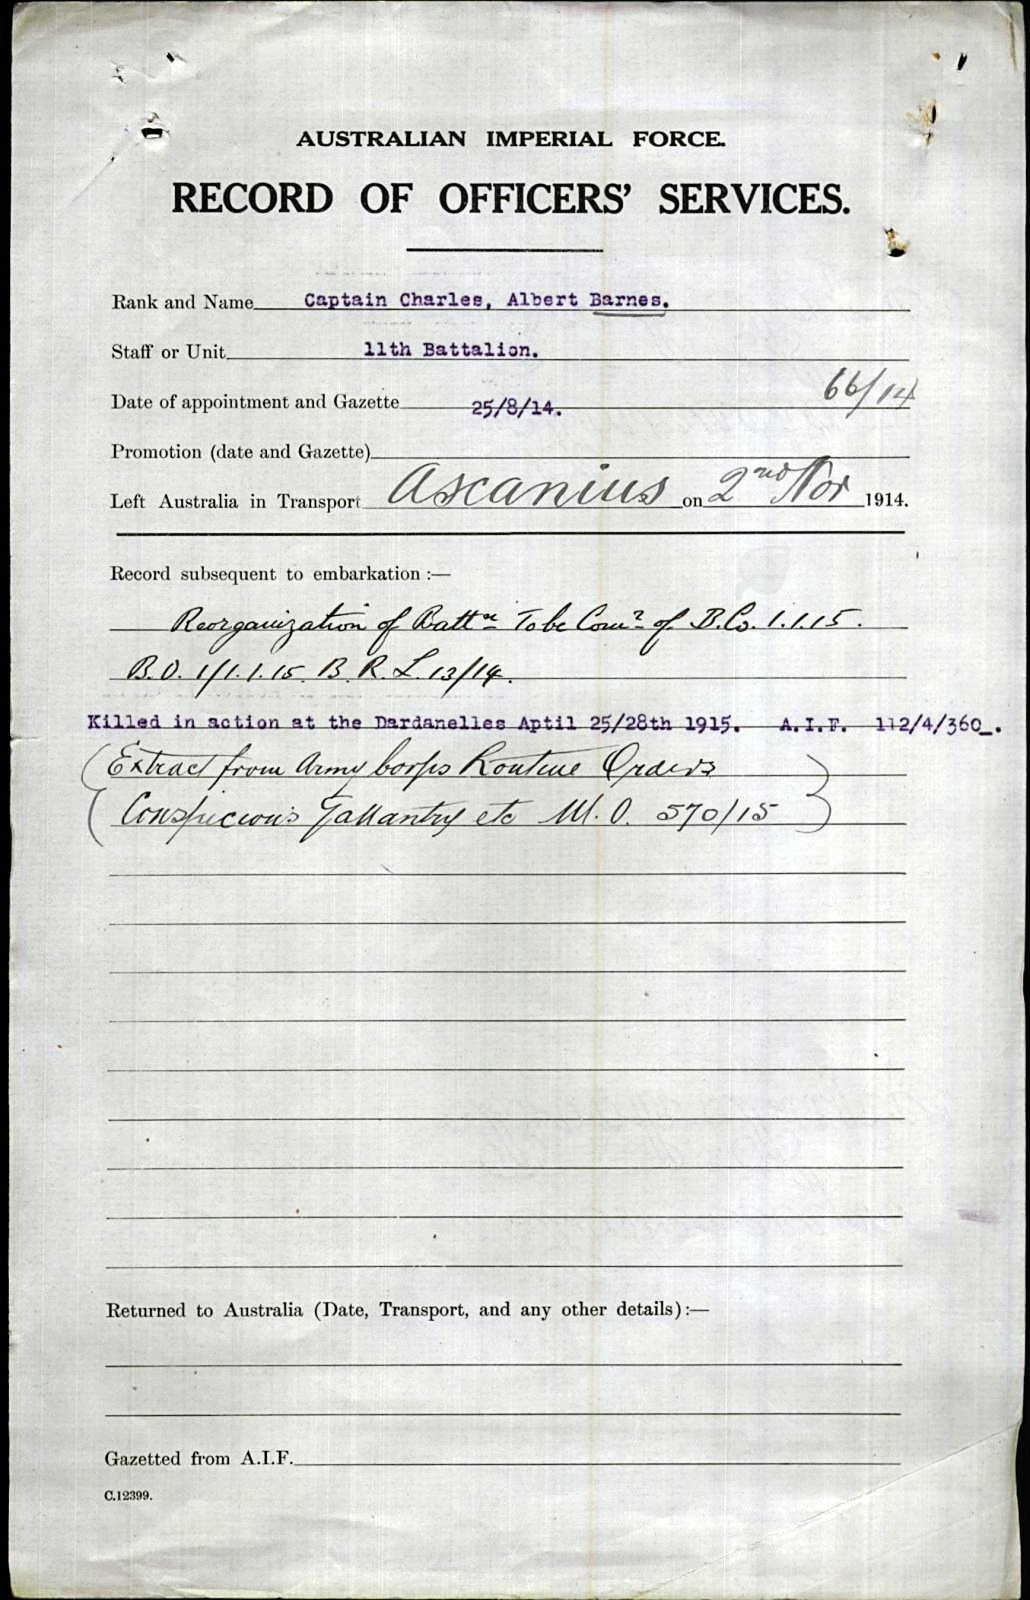 AUSTRALIAN IMPERIAL FORCE.
RECORD OF OFFICERS' SERVICES.
Rank and Name Captain Charles, Albert Barnes.
Staff or Unit 11th Battalion.
Date of appointment and Gazette 25/8/14. 66/14
Promotion (date and Gazette)
Left Australia in Transport Ascanius on 2nd Nov 1914.
Record subsequent to embarkation :—
Reorganization of Battn To be Comr of B. Co. 1.1.15.
B.O. 1/1.1.15. B. R. L. 13/14.
Killed in action at the Dardanelles Aptil 25/28th 1915. A.I.F. 112/4/360_.
(Extract from Army Corps Routine Orders
Conspicious Gallantry etc M.O. 570/15)
Returned to Australia (Date, Transport, and any other details) :—
Gazetted from A.I.F.
C.12399.